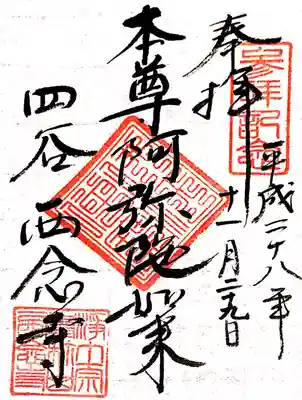 奉拝
参拝記念
平成二十八年
十一月二九日
本尊阿弥陀如来
四谷西念寺
浄土宗